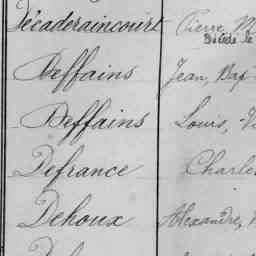 Décaderaincourt Pierre,
Décédé le
Deffains Jean, Bap
Deffains Louis,
Defrance Charle
Dehoux Alexandre,